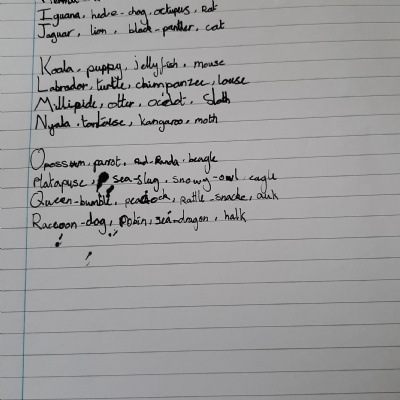 Iguana, hedge-hog, octupus, Rat
Jaguar, lion, black-panther, cat
Koala, puppy, jellyfish, mouse
Labrador, turtle, chimpanzee, louse
Millipide, otter, ocelot, Sloth
Nyala, tortoise, kangaroo, moth
Opossum, parrot, Red-Panda, beagle
Platapuse, sea-slug, snowy-owl, eagle
Queen-bumble, peacock, rattle-snacke,
Raccoon-dog, Robin, sea-dragon, halk